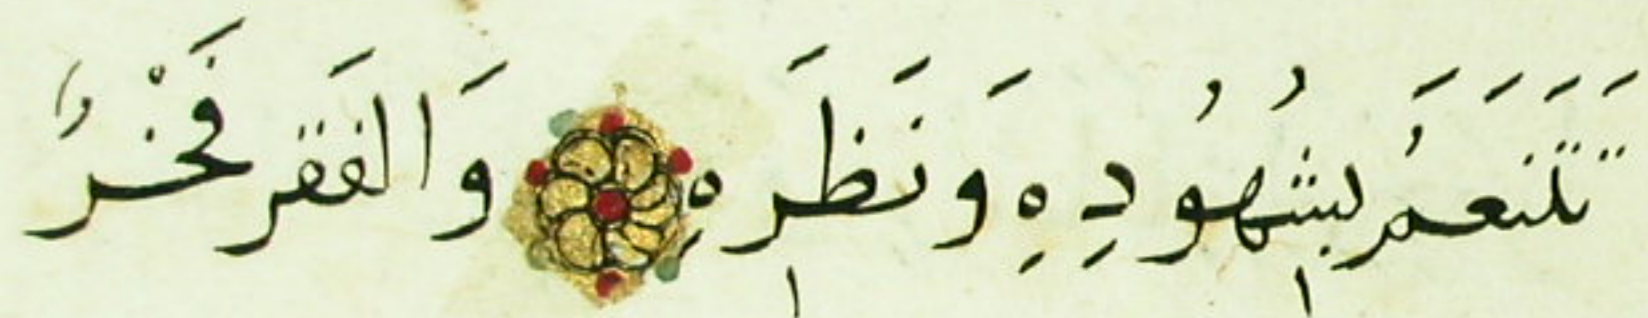 تَتَنَعَمُ بِشُهُودِهِ وَنَظَرِهِ وَالفَقَر فَخْرٌ